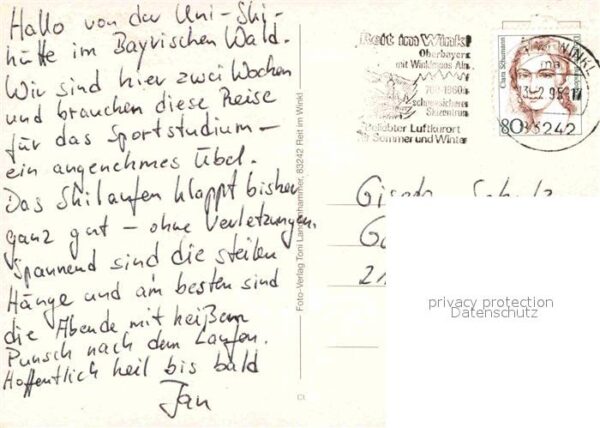 Hallo von der Uni-Ski-
hütte im Bayrischen Wald.
Wir sind hier zwei Wochen
und brauchen diese Reise
für das Sportstudium –
ein angenehmes Übel.
Das Skilaufen klappt bisher
ganz gut – ohne Verletzungen.
Spannend sind die steilen
Hänge und am besten sind
die Abende mit heißem
Punsch nach dem Laufen.
Hoffentlich heil bis bald
Jan
Foto-Verlag Toni Landenhammer, 83242 Reit im Winkl
Reit im Winkl
Oberbayern
mit Winklmoos Alm
700-1860m
schneesicheres
Skizentrum
Beliebter Luftkurort
für Sommer und Winter
WINKL
83242
Clara Schumann
80
Gisela
privacy protection
Datenschutz